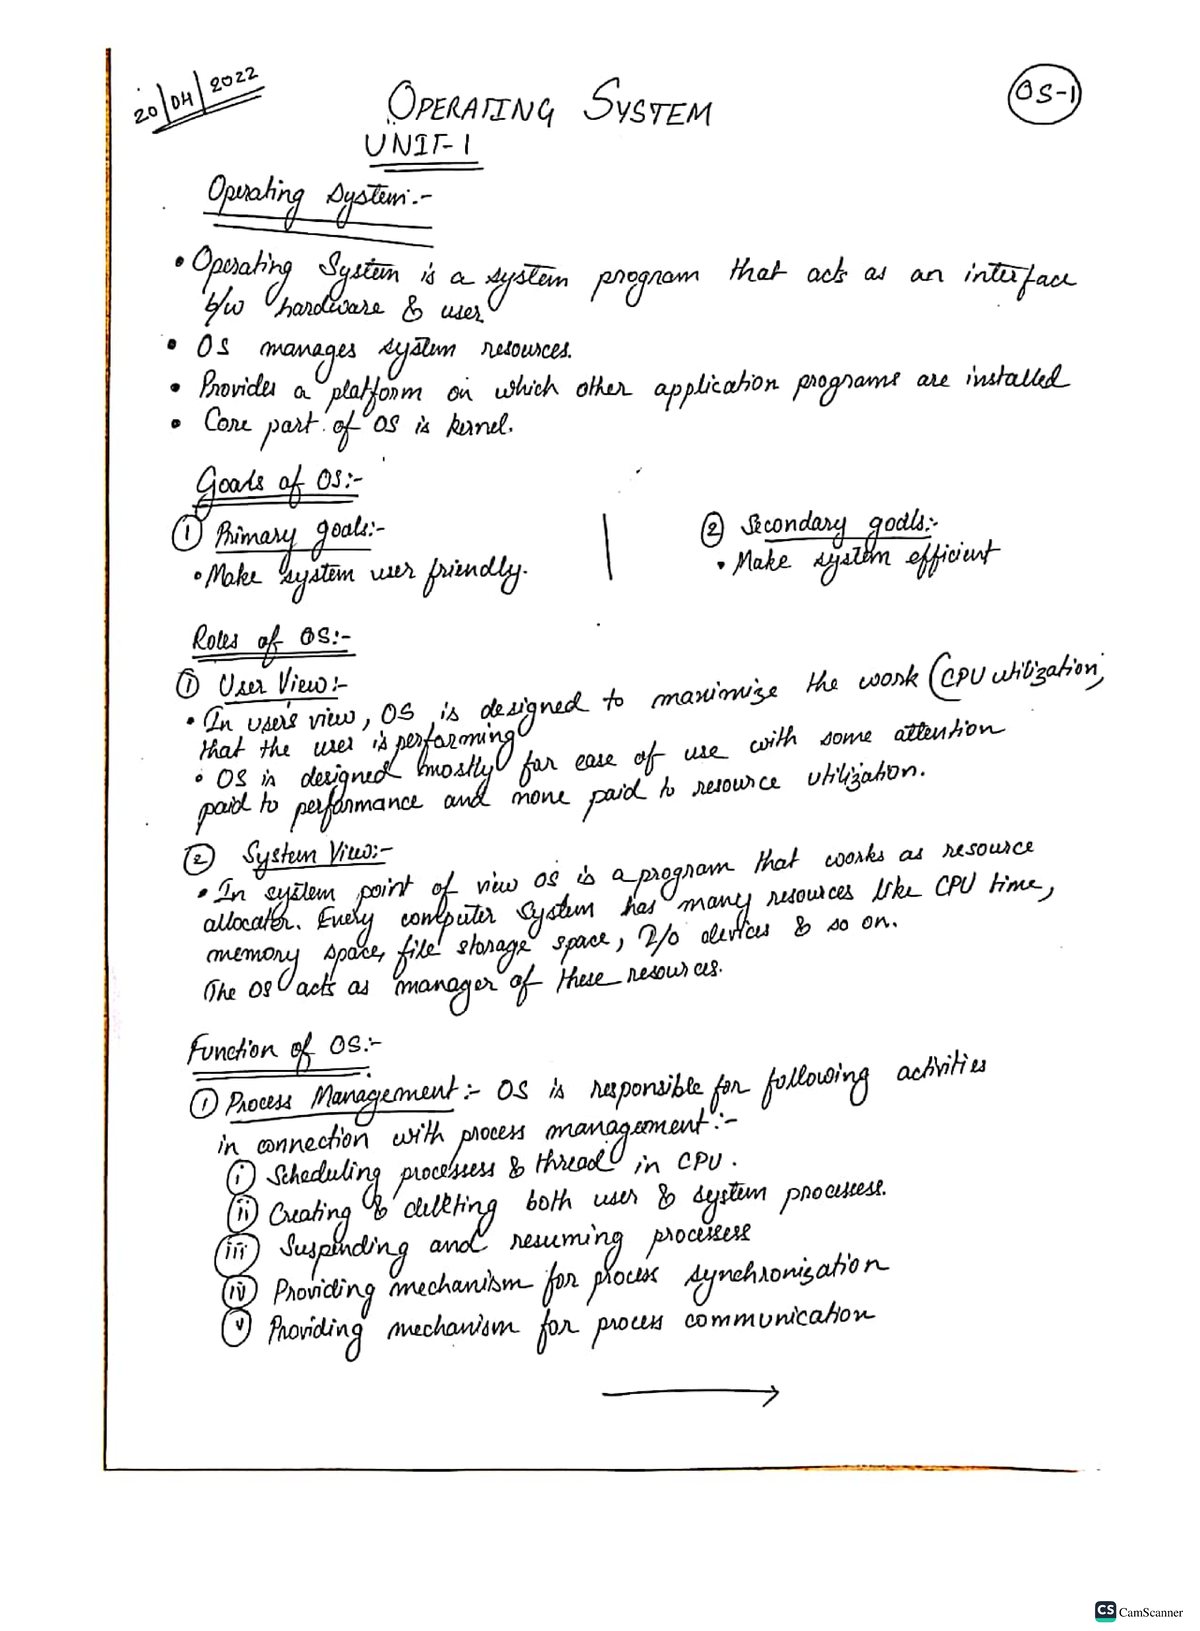 20/04/2022
OPERATING SYSTEM
OS-1
UNIT-1
Operating System:-
• Operating System is a system program that acts as an interface
b/w hardware & user
• OS manages system resources.
• Provides a platform on which other application programs are installed
• Core part of OS is kernel.
Goals of OS:-
① Primary goals:-
• Make system user friendly.
② Secondary goals:-
• Make system efficient
Roles of OS:-
① User View:-
• In user's view, OS is designed to maximize the work (CPU utilization)
that the user is performing
• OS is designed mostly for ease of use with some attention
paid to performance and none paid to resource utilization.
② System View:-
• In system point of view OS is a program that works as resource
allocator. Every computer system has many resources like CPU time,
memory space, file storage space, I/O devices & so on.
The OS acts as manager of these resources.
Function of OS:-
① Process Management:- OS is responsible for following activities
in connection with process management:-
(i) Scheduling processess & thread in CPU.
(ii) Creating & deleting both user & system processess.
(iii) Suspending and resuming processess
(iv) Providing mechanism for process synchronization
(v) Providing mechanism for process communication
CS CamScanner